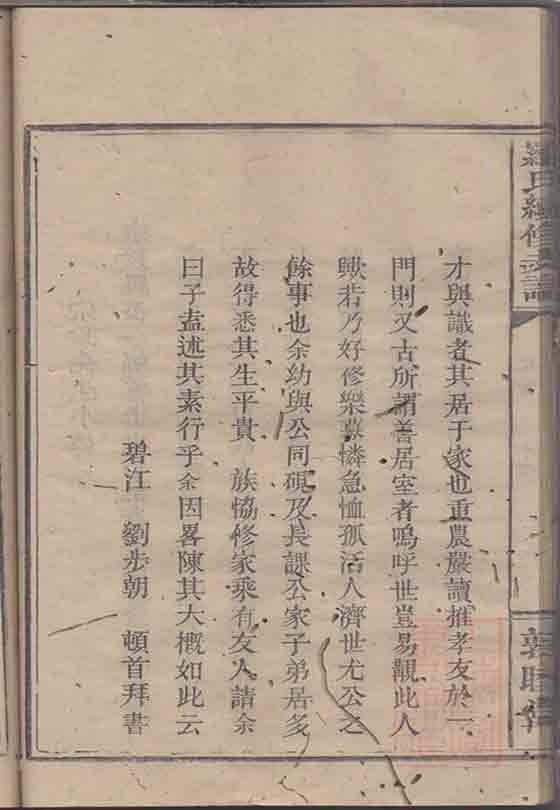 氏續修支譜
才與識者其居于家也重農嚴讀推孝友於一
門則又古所謂善居室者嗚呼世豈易覯此人
歟若乃好修樂善憐急恤孤活人濟世尤公之
餘事也余幼與公同硯及長課公家子弟居多
故得悉其生平貴 族協修家乘有友人請余
曰子盍述其素行乎余因畧陳其大概如此云
碧江 劉步朝 頓首拜書